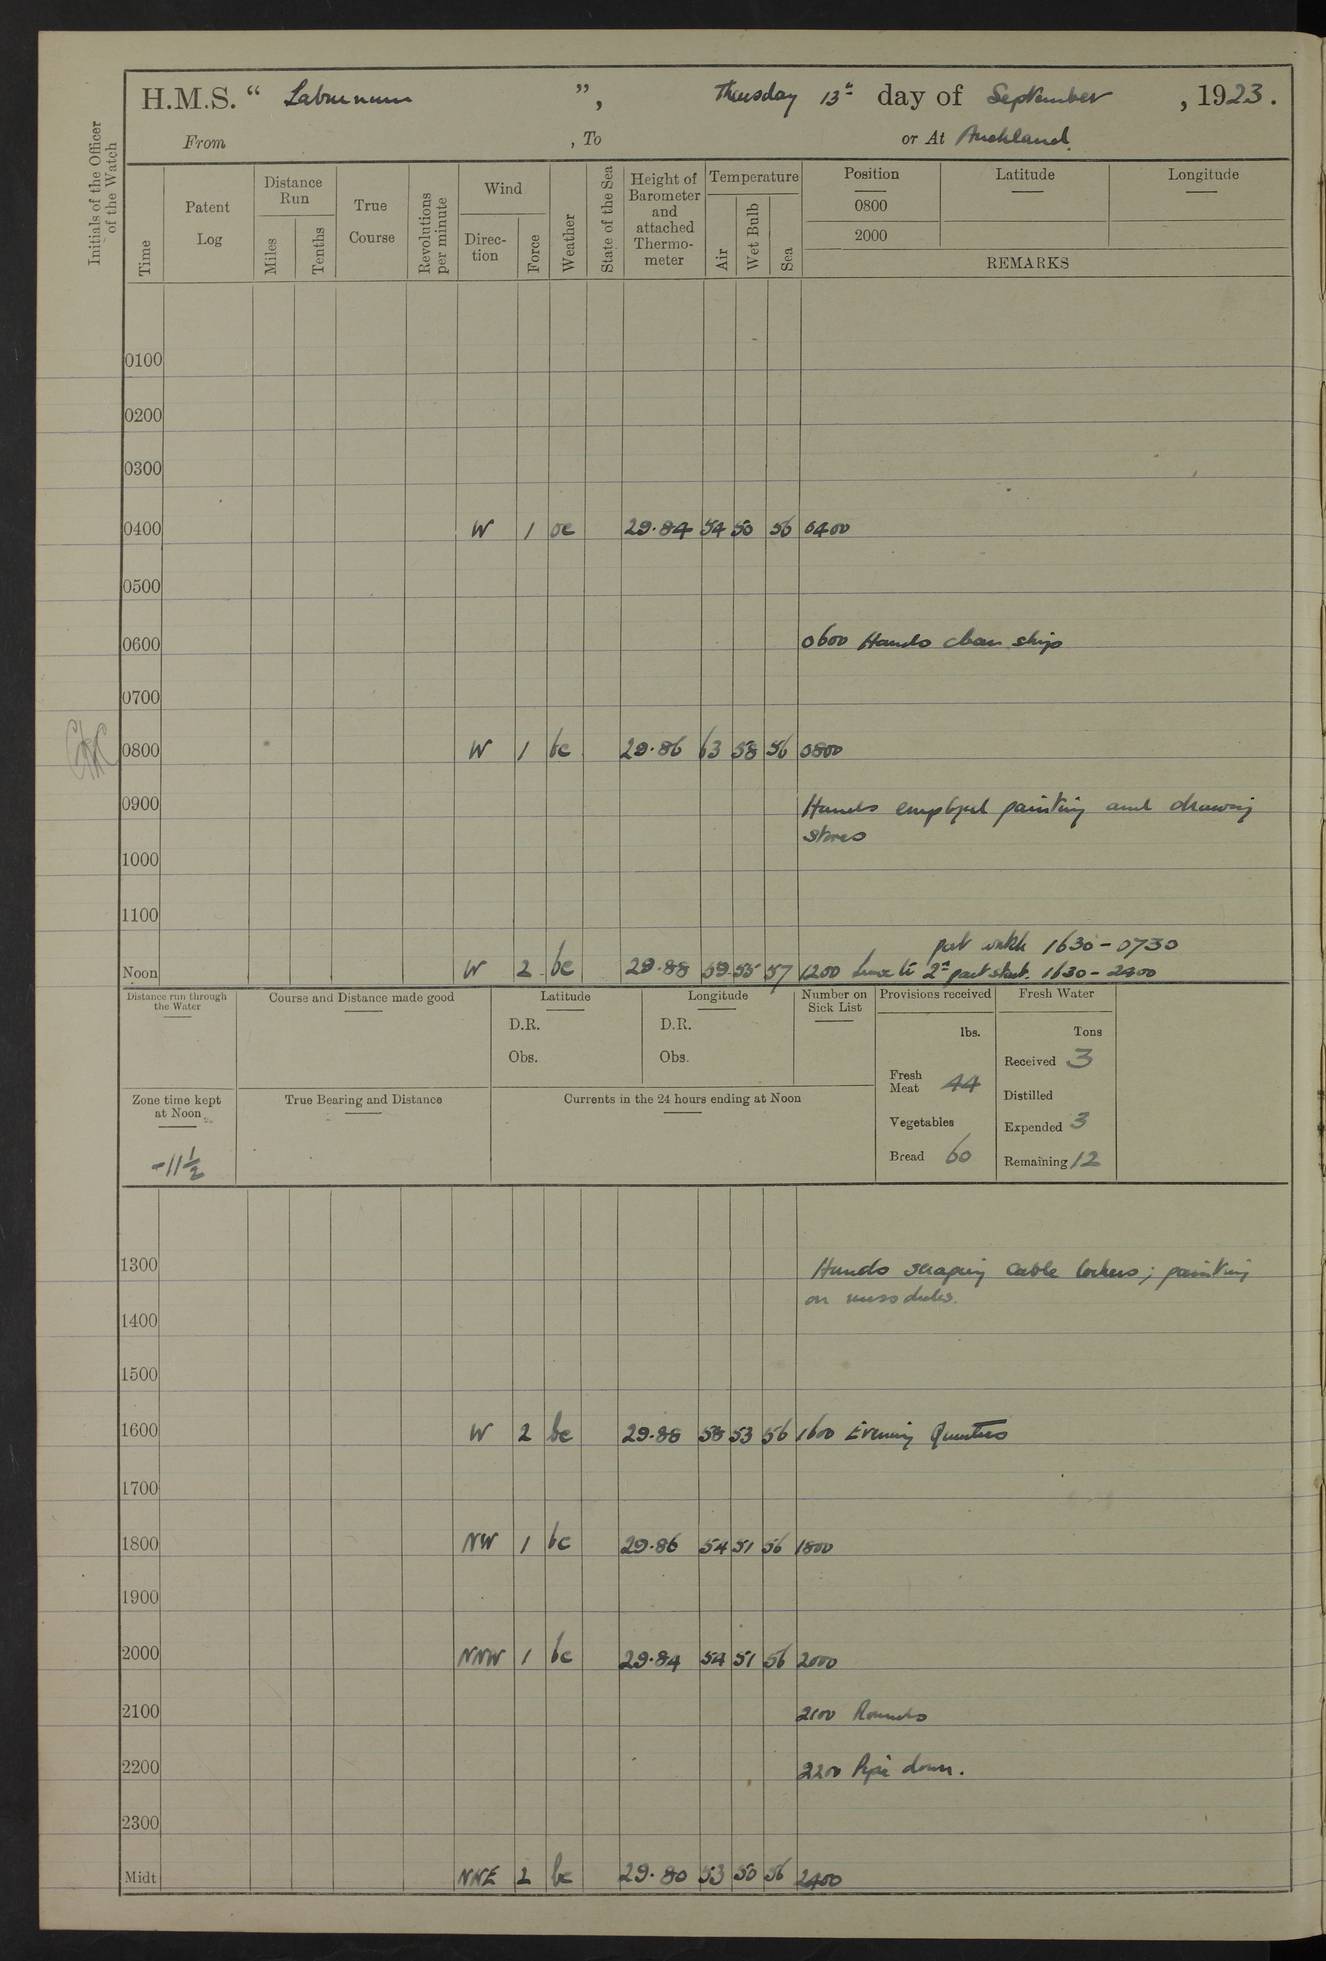 H.M.S. “ Laburnum ”, Thursday 13th day of September , 1923.
From , To or At Auckland.
Initials of the Officer of the Watch
Time
Patent Log
Distance Run
Miles
Tenths
True Course
Revolutions per minute
Wind
Direc-tion
Force
Weather
State of the Sea
Height of Barometer and attached Thermo-meter
Temperature
Air
Wet Bulb
Sea
Position
0800
2000
Latitude
Longitude
REMARKS
0100
0200
0300
0400 W 1 oc 29.84 54 50 56 0400
0500
0600 0600 Hands clean ship
0700
0800 W 1 bc 29.86 63 58 56 0800
0900 Hands employed painting and drawing
stores
1000
1100
part watch 1630-0730
Noon W 2 bc 29.88 59 55 57 1200 Leave to 2nd part starb. 1630-2400
Distance run through the Water
Course and Distance made good
Latitude
D.R.
Obs.
Longitude
D.R.
Obs.
Number on Sick List
Provisions received
lbs.
Fresh Meat 44
Vegetables
Bread 60
Fresh Water
Tons
Received 3
Distilled
Expended 3
Remaining 12
Zone time kept at Noon
-11½
True Bearing and Distance
Currents in the 24 hours ending at Noon
1300 Hands scraping cable lockers; painting
on mess decks.
1400
1500
1600 W 2 bc 29.88 58 53 56 1600 Evening Quarters
1700
1800 NW 1 bc 29.86 54 51 56 1800
1900
2000 NNW 1 bc 29.84 54 51 56 2000
2100 2100 Rounds
2200 2200 Pipe down.
2300
Midt NNE 2 bc 29.80 53 50 56 2400